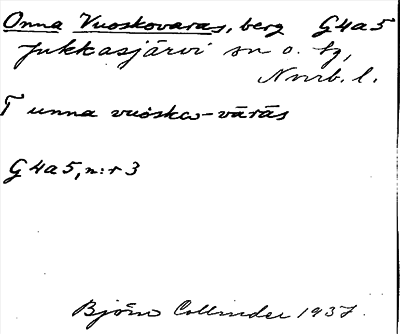 Onna Vuoskovaras, berg G4a5
Jukkasjärvi sn o. tg,
Nvrb. l.
T unna vuɔska-vārās
G4a5, n:r 3
Björn Collinder 1937.